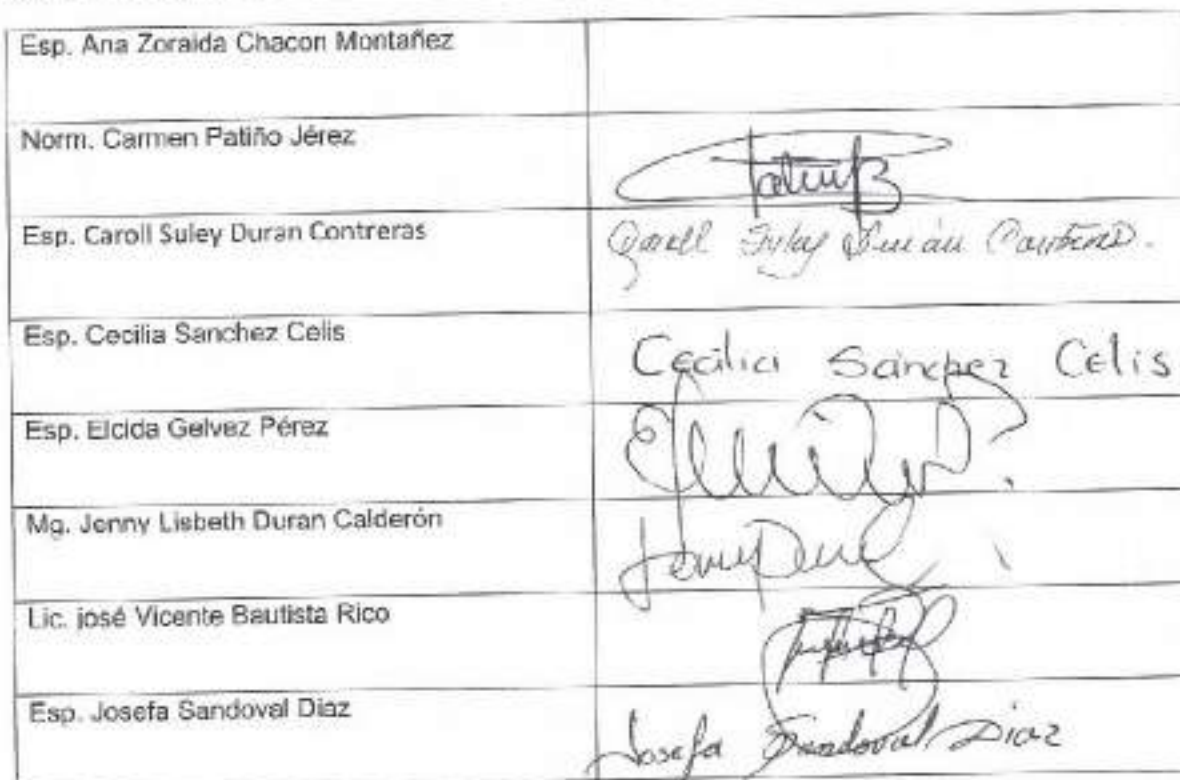 Esp. Ana Zoraida Chacon Montañez
Norm. Carmen Patiño Jérez
Esp. Caroll Suley Duran Contreras
Caroll Suley Durán Contreras.
Esp. Cecilia Sanchez Celis
Cecilia Sánchez Celis
Esp. Elcida Gelvez Pérez
Mg. Jenny Lisbeth Duran Calderón
Lic. josé Vicente Bautista Rico
Esp. Josefa Sandoval Diaz
Josefa Sandoval Diaz